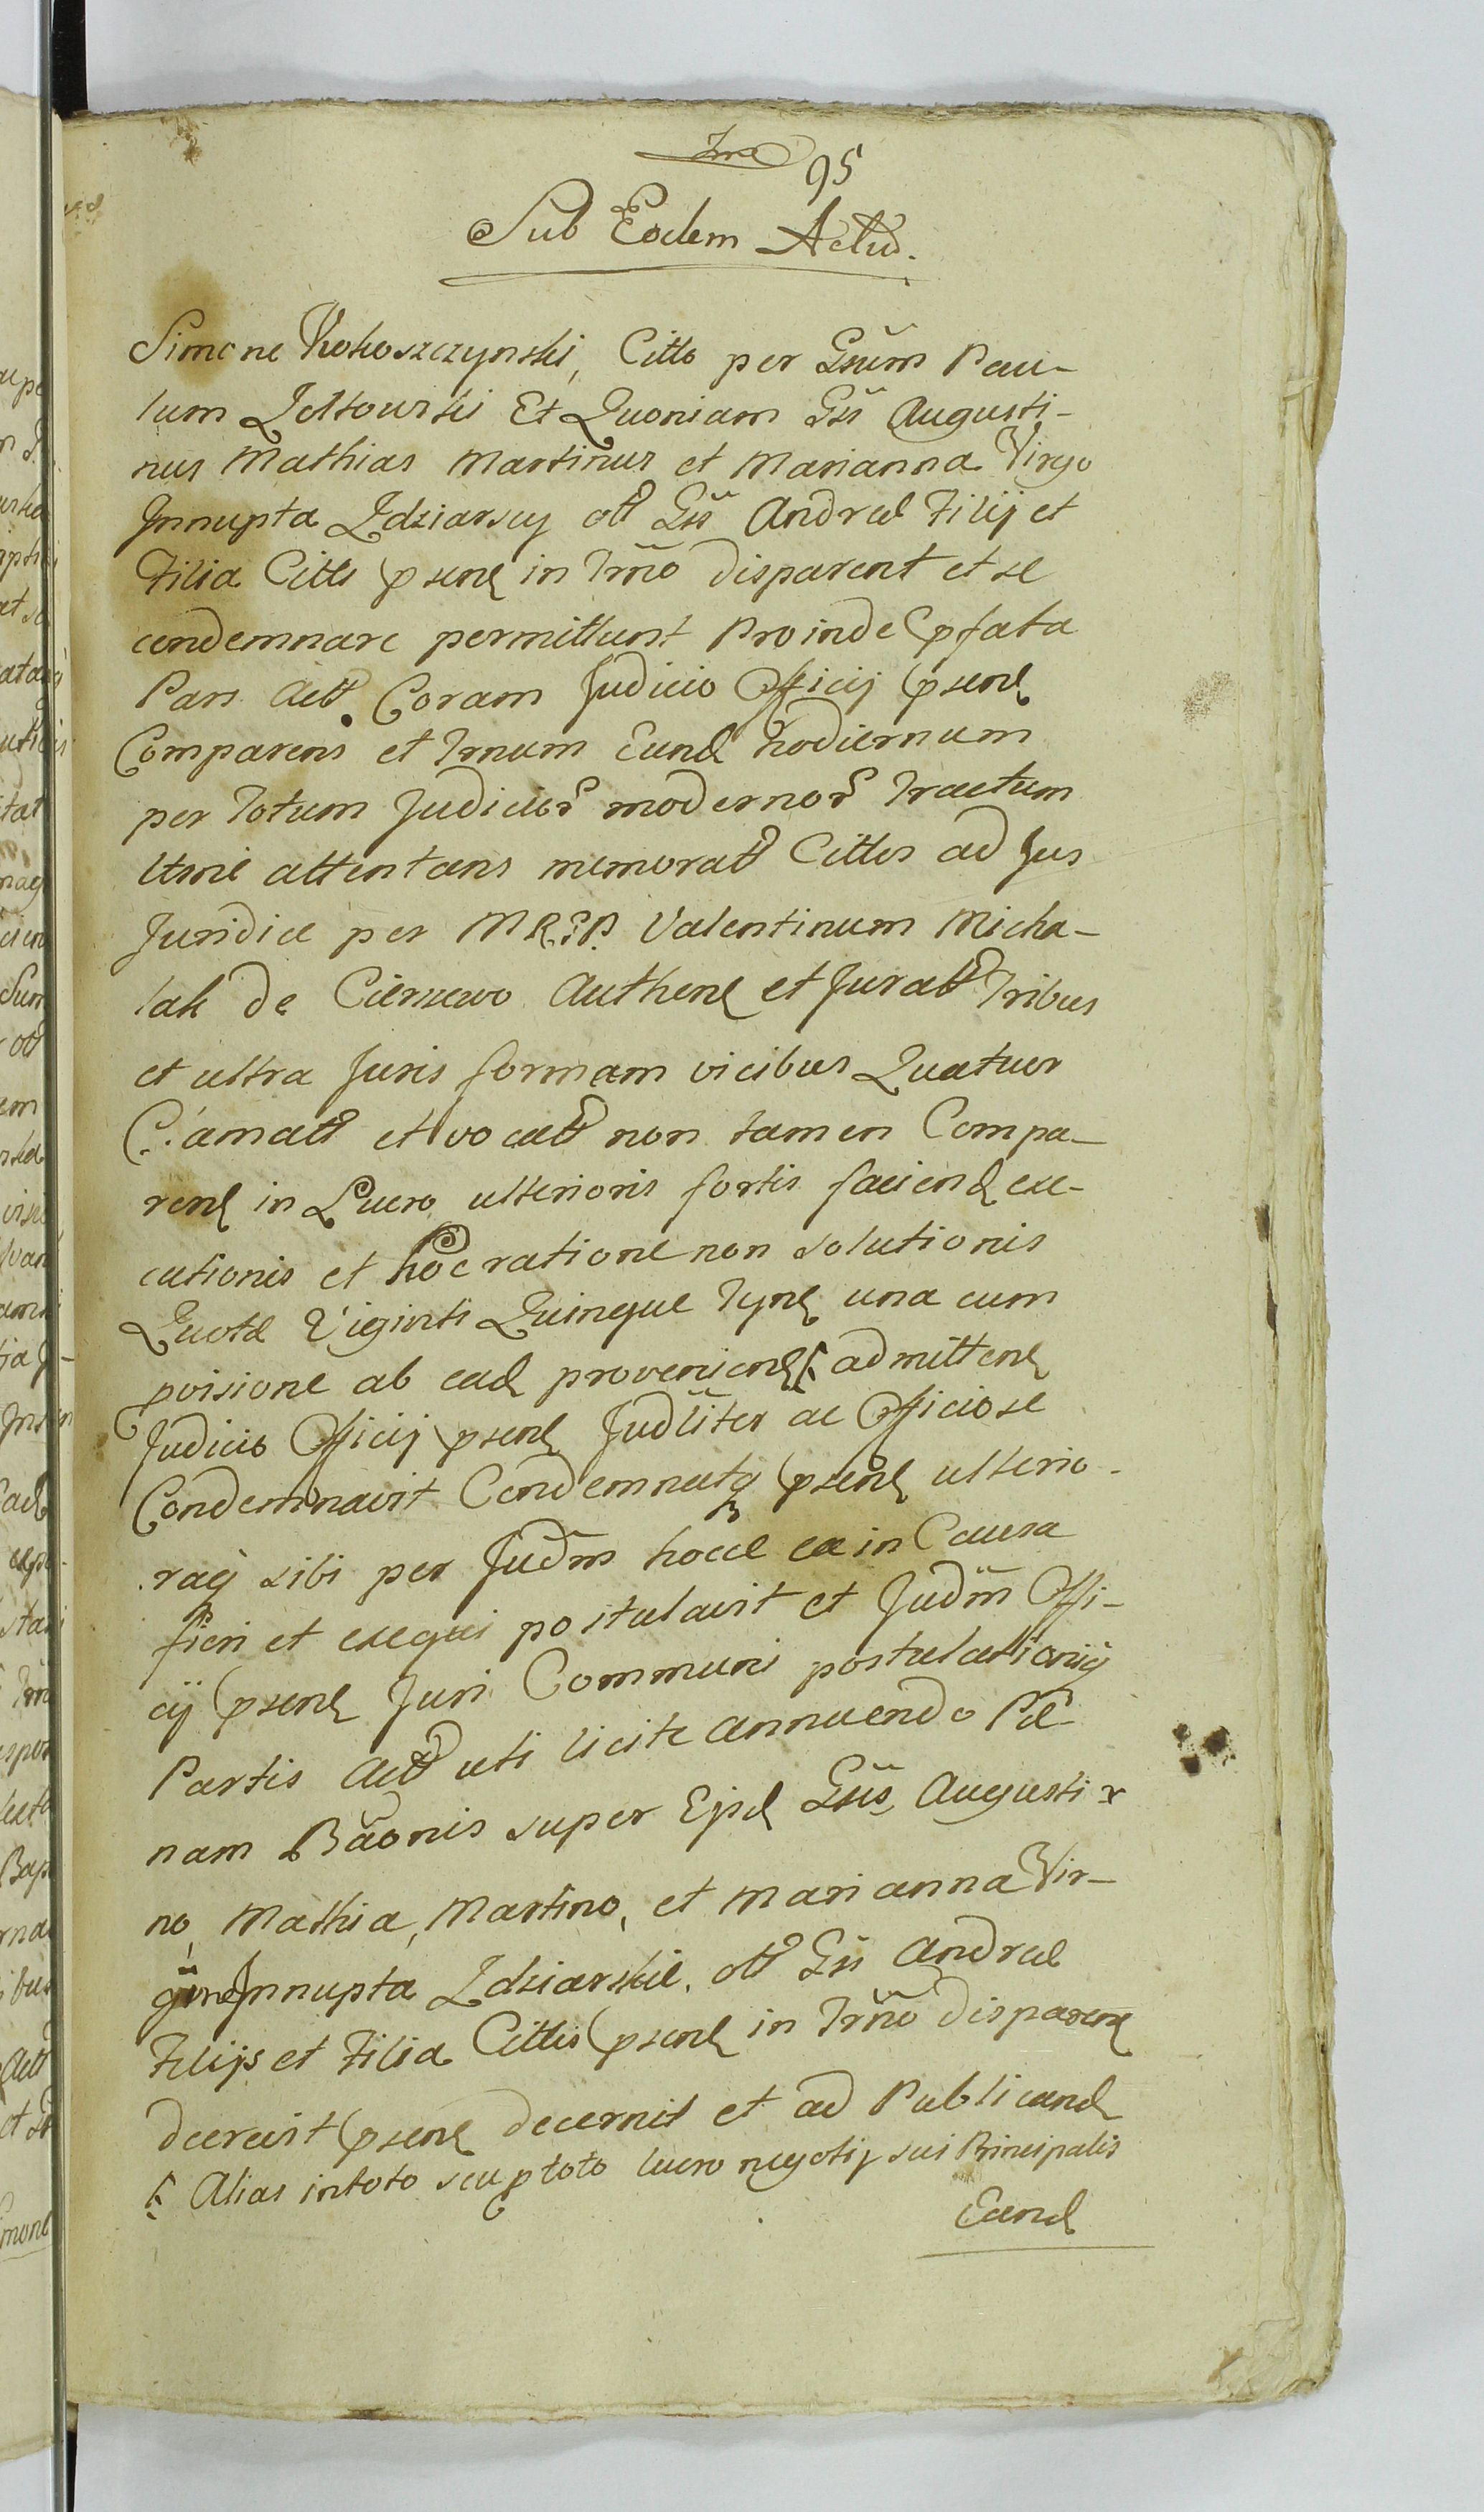 95
Sub Eodem Actu.
Simone Kokoszczynski, Citto per Gsum Pau-
lum Zoltowski Et Quoniam Gsi Augusti-
nus Mathias Martinus et Marianna Virgo
Innupta Zdziarscy ott Gsi Andreæ Filij et
Filia Citti psens in Trno disparent et se
condemnare permittunt Proinde pfata
Pars Act. Coram Judicio Officij psens
Comparens et Trnum Eund hodiernum
per Totum Judicior modernor Tractum
ltme attentans memorat Cittos ad Jus
Juridice per MRSP. Valentinum Micha-
lak de Cierzewo Authen et Jurat Tribus
et ultra Juris formam vicibus Quatuor
Clamatt et vocatt non tamen Compa-
ren in Lucro ulterioris fortis faciend exe-
cutionis et hoc ratione non solutionis
Quotæ Viginti Quinque Tyn una cum
pvisione ab ead provenien admitten
Judicio Officij psen Judliter ac Officiose
Condemnavit Condemnatq psen ulterio-
raq sibi per Judm hocce ea in Causa
fieri et exequi postulavit et Judm Offi-
cij psen Juri Communi postulationiq
Partis Act uti licite annuendo Pæ-
nam Baonis super Ejsd Gsis Augusti-
no, Mathia, Martino, et Marianna Vir-
gine Innupta Zdziarskie. ott Gsi Andreæ
Filijs et Filia Cittis psen in Trno disparen
decrevit psen decernit et ad Publicand
Alias in toto seu ptoto lucro negotij sui Principalis
Eand